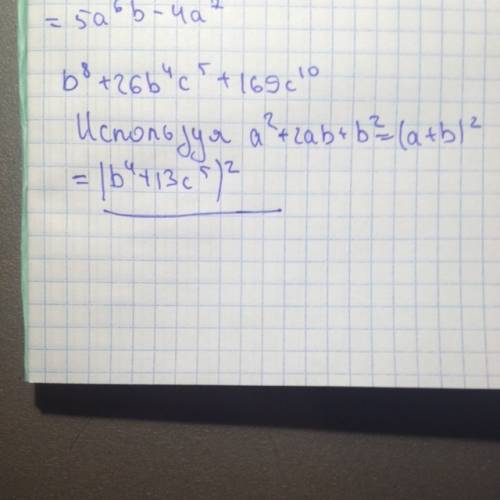 = 5a⁶b - 4a²
b⁸ + 26b⁴c⁵ + 169c¹⁰
Используя a² + 2ab + b² = (a + b)²
= (b⁴ + 13c⁵)²